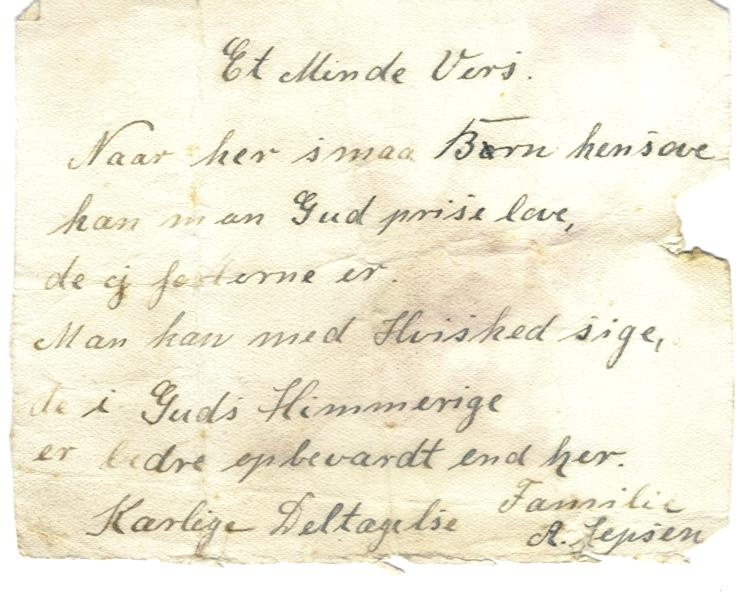 Et Minde Vers.
Naar her smaa Børn hensove
kan man Gud prise love,
de ej forlorne er.
Man kan med Hvished sige,
de i Guds Himmerige
er bedre opbevardt end her.
Kærlige Deltagelse Familie
A. Jepsen